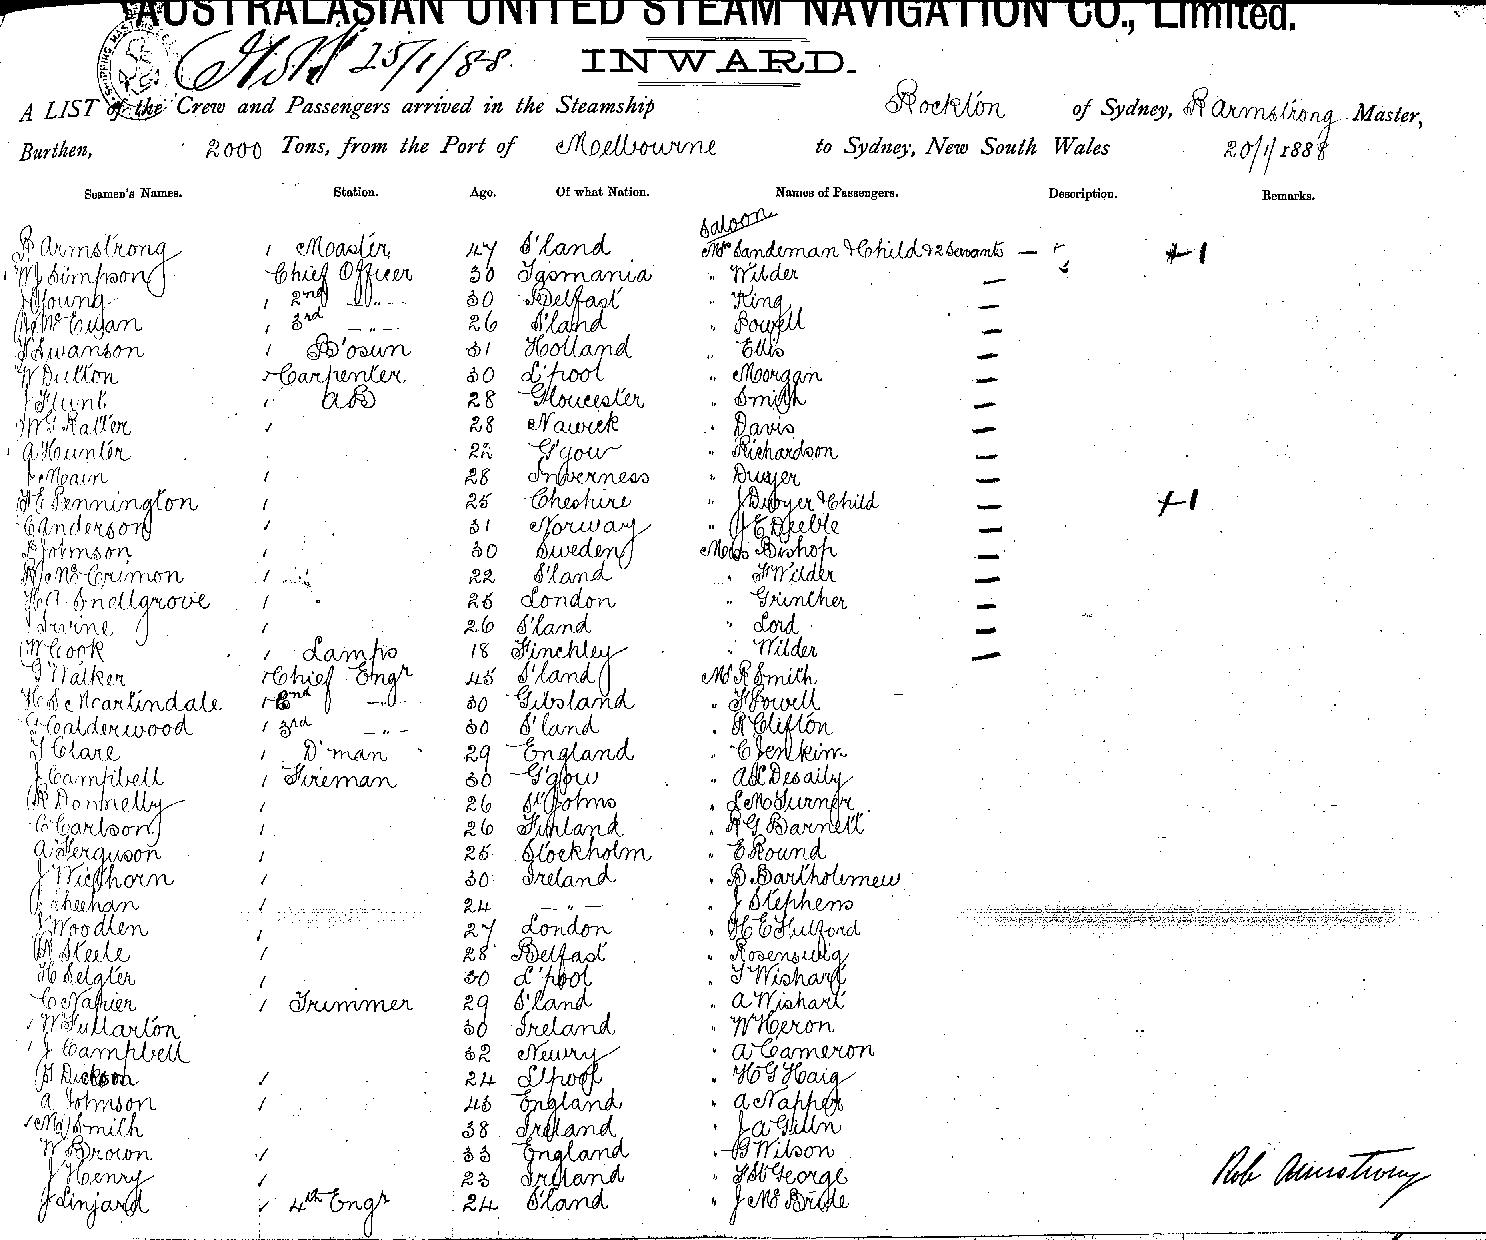 AUSTRALASIAN UNITED STEAM NAVIGATION CO., Limited.
25/1/88.
INWARD.
A LIST of the Crew and Passengers arrived in the Steamship Rockton of Sydney, R Armstrong Master,
Burthen, 2000 Tons, from the Port of Melbourne to Sydney, New South Wales 20/1/1888
Seamen's Names. Station. Age. Of what Nation. Names of Passengers. Description. Remarks.
Saloon
R Armstrong 1 Master 47 S'land Mrs Sandeman & Child & 2 Servants — +1
W J Simpson Chief Officer 30 Tasmania " Wilder —
J Young 1 2nd —"— 30 Belfast " King —
Mc Ewan 1 3rd —"— 26 S'land " Powell —
Swanson 1 B'osun 31 Holland " Ellis —
W Dutton 1 Carpenter 30 L'pool " Morgan —
J Flint 1 AB 28 Gloucester " Smith —
W G Ratter 1 28 Nawick " Davis —
A Hounter 22 G'gow " Richardson —
J Main 1 28 Inverness " Dwyer —
Pennington 1 25 Cheshire " J Dwyer & Child — +1
C Anderson 1 31 Norway " J E Deeble —
Johnson 1 30 Sweden Miss Bishop —
Mc Crimon 1 22 S'land " F Wilder —
H A Snellgrove 1 25 London " Grincher —
Irvine 1 26 S'land " Lord —
W Cook 1 Lamps 18 Finchley " Wilder —
Walker 1 Chief Engr 45 S'land Mr R Smith
H S Martindale 1 2nd —"— 30 Gibsland " F Powell
Calderwood 1 3rd —"— 30 S'land " R Clifton
T Clare 1 D'man 29 England " C Jenkim
J Campbell 1 Fireman 30 G'gow " A L Desaily
R Donnelly 1 26 St Johns " L M Turner
C Carlson 1 26 Finland " R G Barnett
A Ferguson 1 25 Stockholm " E Round
J Wichhorn 1 30 Ireland " B Bartholemew
J Sheehan 1 24 —"— " J Stephens
J Woodlen 1 27 London " H E Fulford
W Steele 1 28 Belfast " Rosenswig
H Selgter 1 30 L'pool " T Wishart
C Napier 1 Trimmer 29 S'land " A Wishart
1 W Fullarton 30 Ireland " W Heron
1 J Campbell 32 Newry " A Cameron
Dickson 1 24 L'pool " H G Haig
A Johnson 1 45 England " A Napper
Smith 38 Ireland " J A Gilln
W Brown 1 33 England " B Wilson
J Henry 1 23 Ireland " F St George
J Linjard 1 4th Engr 24 S'land " J McBride
Rob Armstrong